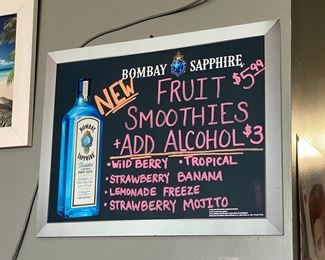 BOMBAY SAPPHIRE
NEW FRUIT $5.99
SMOOTHIES
+ADD ALCOHOL $3
•WILD BERRY •TROPICAL
•STRAWBERRY BANANA
•LEMONADE FREEZE
•STRAWBERRY MOJITO
BOMBAY
SAPPHIRE